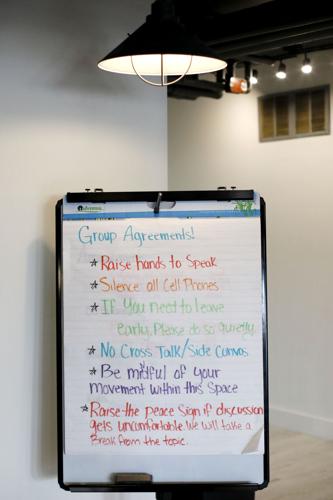 Group Agreements!
* Raise hands to Speak
* Silence all Cell Phones
* If You need to leave
early, Please do so quietly.
* No Cross Talk/Side Convos
* Be midful of your
movement within this Space
* Raise the peace Sign if discussion
gets uncomfortable. We will take a
Break from the topic.